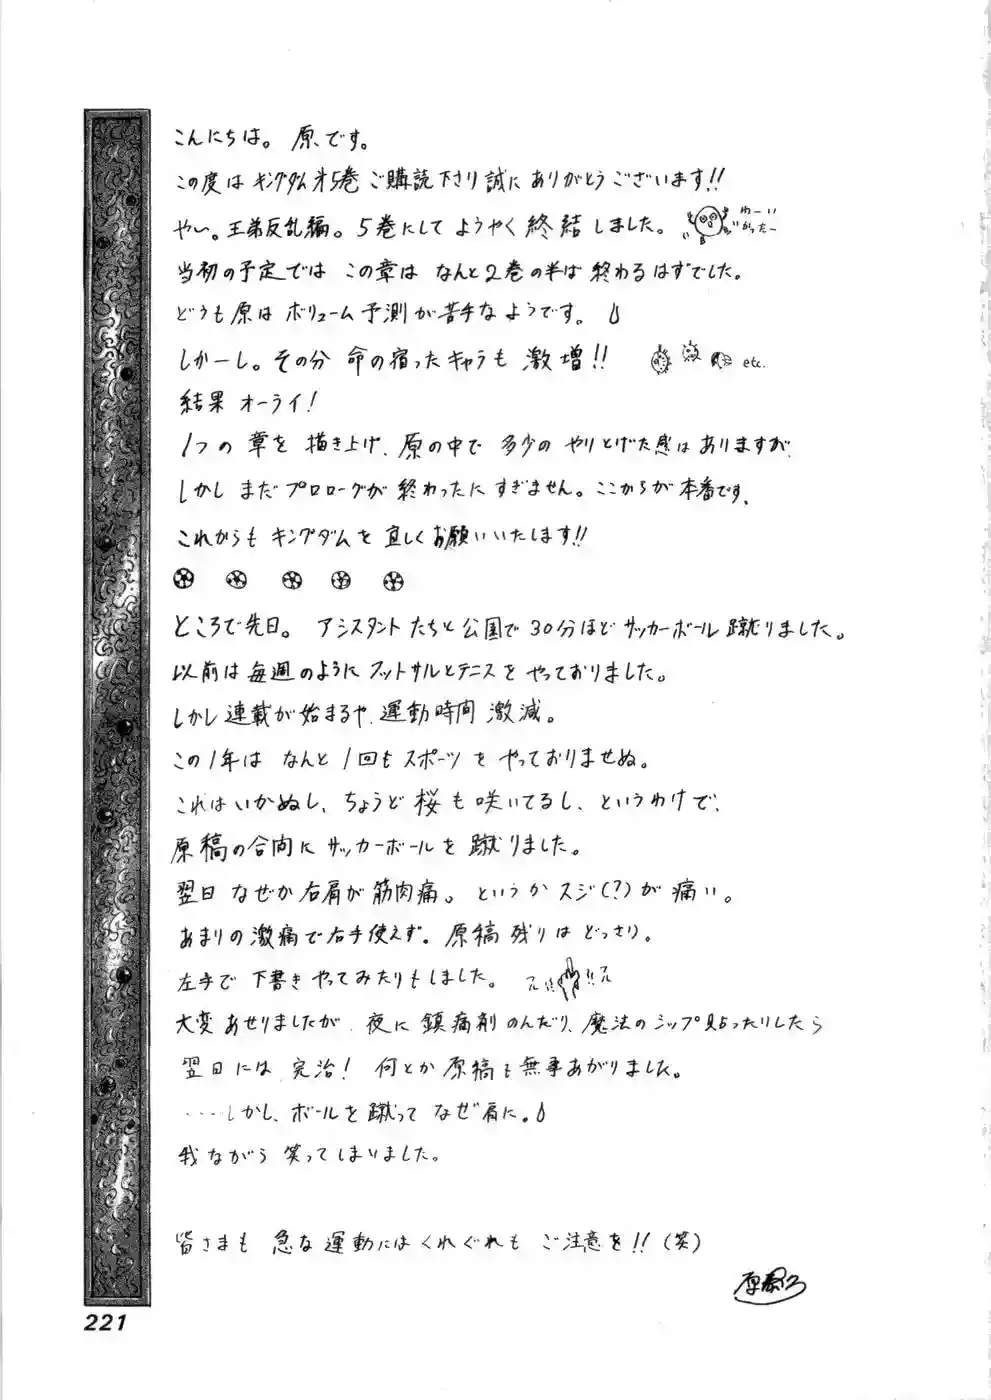 こんにちは。原です。
この度はキングダム第5巻ご購読下さり誠にありがとうございます!!
やい。王弟反乱編。5巻にしてようやく終結しました。
わーい
かったー
当初の予定ではこの章はなんと2巻の半ば終わるはずでした。
どうも原はボリューム予測が苦手なようです。
しかーし。その分命の宿ったキャラも激増!!
etc.
結果オーライ!
1つの章を描き上げ、原の中で多少のやりとげた感はありますが、
しかしまだプロローグが終わったにすぎません。ここからが本番です、
これからもキングダムを宜しくお願いいたします!!
ところで先日。アシスタントたちと公園で30分ほどサッカーボール蹴りました。
以前は毎週のようにフットサルとテニスをやっておりました。
しかし連載が始まるや、運動時間激減。
この1年はなんと1回もスポーツをやっておりませぬ。
これはいかぬし、ちょうど桜も咲いてるし、というわけで、
原稿の合間にサッカーボールを蹴りました。
翌日なぜか右肩が筋肉痛。というかスジ(?)が痛い。
あまりの激痛で右手使えず。原稿残りはどっさり。
左手で下書きやってみたりもしました。
大変あせりましたが、夜に鎮痛剤のんだり、魔法のシップ貼ったりしたら
翌日には完治!何とか原稿も無事あがりました。
‥‥しかし、ボールを蹴ってなぜ肩に。
我ながら笑ってしまいました。
皆さまも急な運動にはくれぐれもご注意を!!(笑)
原泰久
221